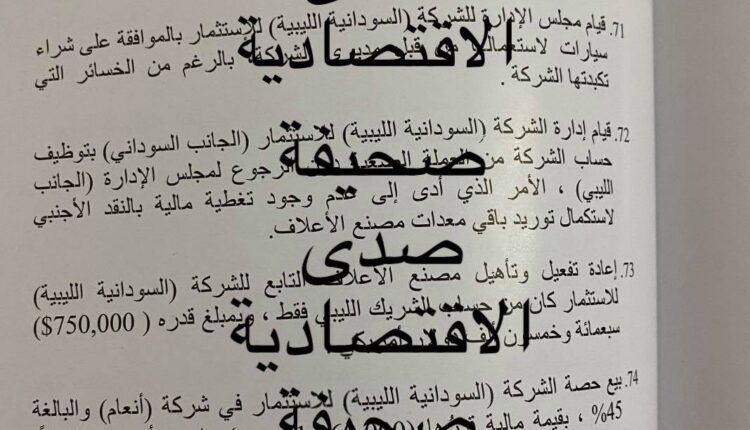 71. قيام مجلس الإدارة للشركة (السودانية الليبية) للاستثمار بالموافقة على شراء
سيارات لاستعمالها من قبل مديري الشركة، بالرغم من الخسائر التي
تكبدتها الشركة .
72. قيام إدارة الشركة (السودانية الليبية) للاستثمار (الجانب السوداني) بتوظيف
حساب الشركة من العملة الصعبة دون الرجوع لمجلس الإدارة (الجانب
الليبي) ، الأمر الذي أدى إلى عدم وجود تغطية مالية بالنقد الأجنبي
لاستكمال توريد باقي معدات مصنع الأعلاف.
73. إعادة تفعيل وتأهيل مصنع الأعلاف التابع للشركة (السودانية الليبية)
للاستثمار كان من حساب الشريك الليبي فقط ، وبمبلغ قدره ( 750,000$)
سبعمائة وخمسون ألف
74. بيع حصة الشركة (السودانية الليبية) للاستثمار في شركة (أنعام) والبالغة
45% ، بقيمة مالية
الاقتصادية
صحيفة
صدى
الاقتصادية
صحيفة